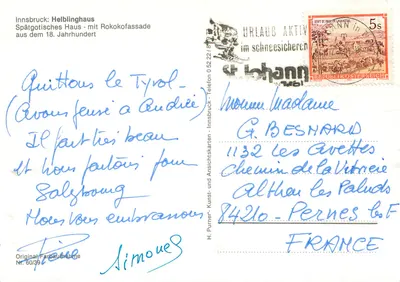 Innsbruck: Helblinghaus
Spätgotisches Haus - mit Rokokofassade
aus dem 18. Jahrhundert
Quittons le Tyrol -
(Avons pensé à Andrée)
Il fait très beau
et nous partons pour
Salzbourg
Nous vous embrassons
Simone
Nr.
H. Purner Kunst- und Ansichtskarten - Innsbruck - Telefon 0 52 22 /
URLAUB AKTIV
im schneesicheren
St. Johann
5s
REPUBLIK ÖSTERREICH
Madame
G. BESNARD
1132 les Avettes
Chemin de la
Althen les Paluds
84210 - Pernes les F
FRANCE